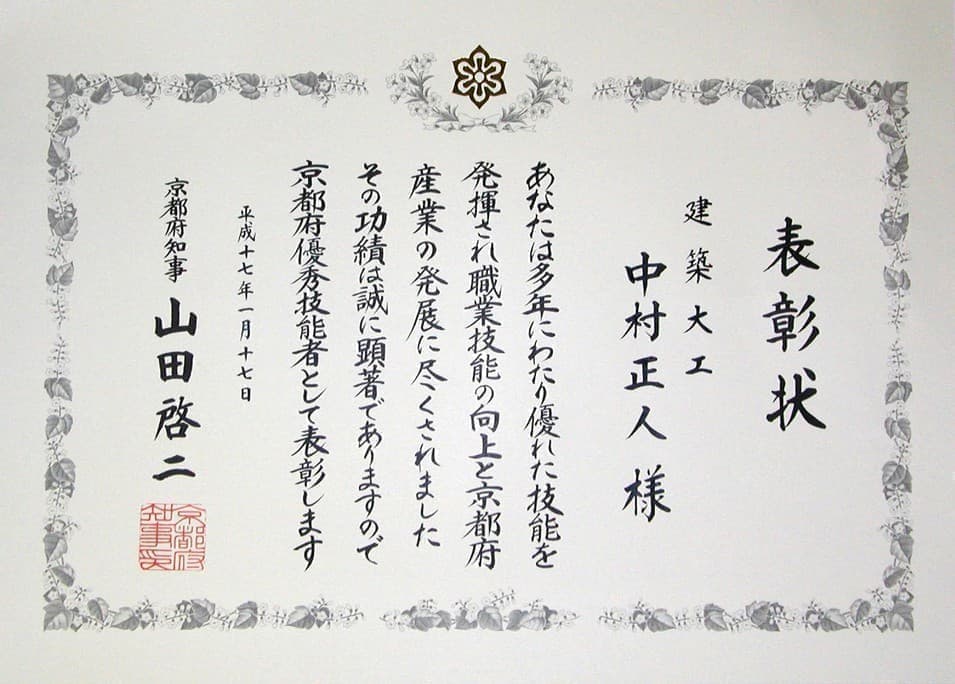 表彰状
建築大工
中村正人様
あなたは多年にわたり優れた技能を
発揮され職業技能の向上と京都府
産業の発展に尽くされました
その功績は誠に顕著でありますので
京都府優秀技能者として表彰します
平成十七年一月十七日
京都府知事 山田啓二
京都府
知事印